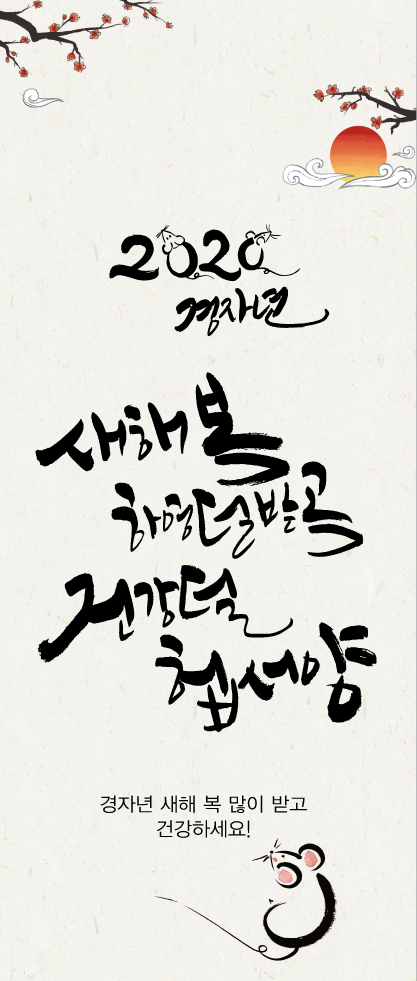 2020
경자년
새해 복
하영덜 받곡
건강덜
헙서양
경자년 새해 복 많이 받고
건강하세요!